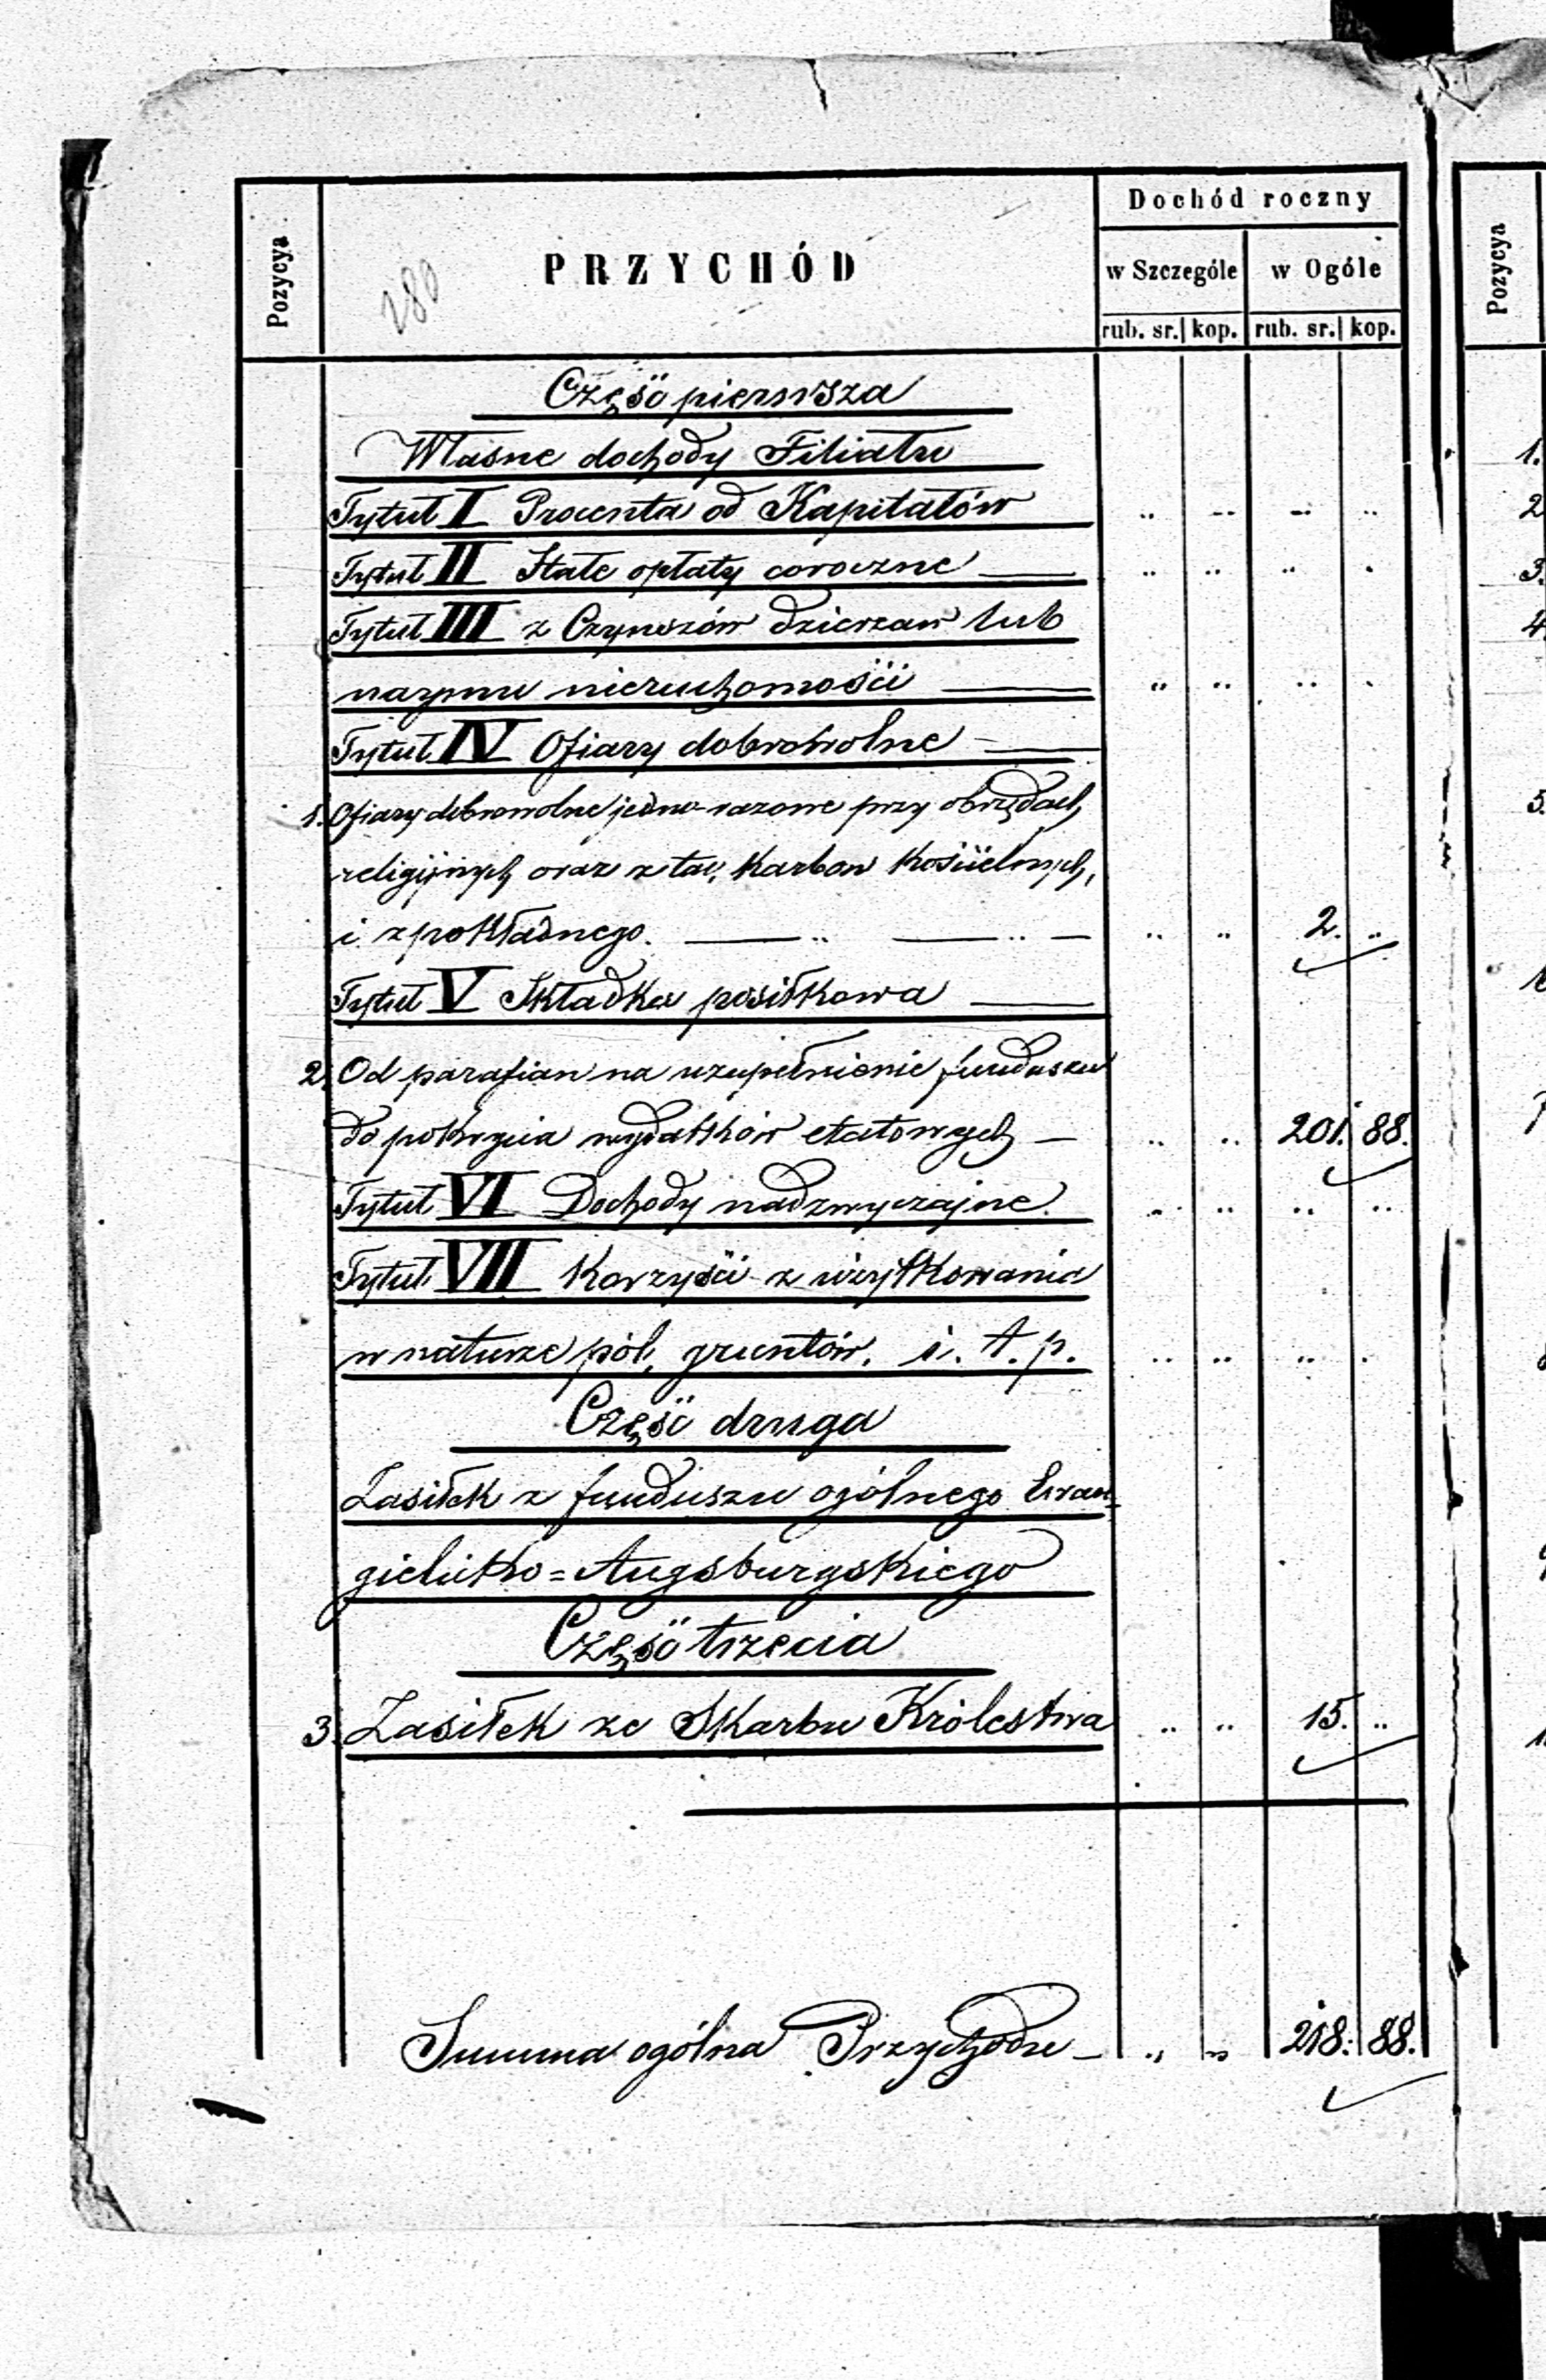 Pozycya
PRZYCHÓD
280
Dochód roczny
w Szczególe
w Ogóle
rub. sr. kop. rub. sr. kop.
Pozycya
Część pierwsza
Własne dochody Filiału
Tytuł I Procenta od Kapitałów " " " "
Tytuł II Stałe opłaty coroczne — " " " "
Tytuł III z Czynszów dzierżaw lub
najmu nieruchomości — " " " "
Tytuł IV Ofiary dobrowolne —
1. Ofiary dobrowolne jedno-razowe przy obrzędach
religijnych oraz z tac, Karbon Kościelnych,
i z pokładnego. — " — " — " " 2. "
Tytuł V Składka posiłkowa —
2. Od parafian na uzupełnienie funduszu
do pokrycia wydatków etatowych — " " 201. 88.
Tytuł VI Dochody nadzwyczajne. " " " "
Tytuł VII Korzyści z użytkowania
w naturze pól, gruntów, i. t. p. " " " "
Część druga
Zasiłek z funduszu ogólnego Ewan-
gielicko=Augsburgskiego
Część trzecia
3. Zasiłek ze Skarbu Królestwa " " 15. "
Summa ogólna Przychodu — " " 218. 88.
1.
2
3.
4
5.